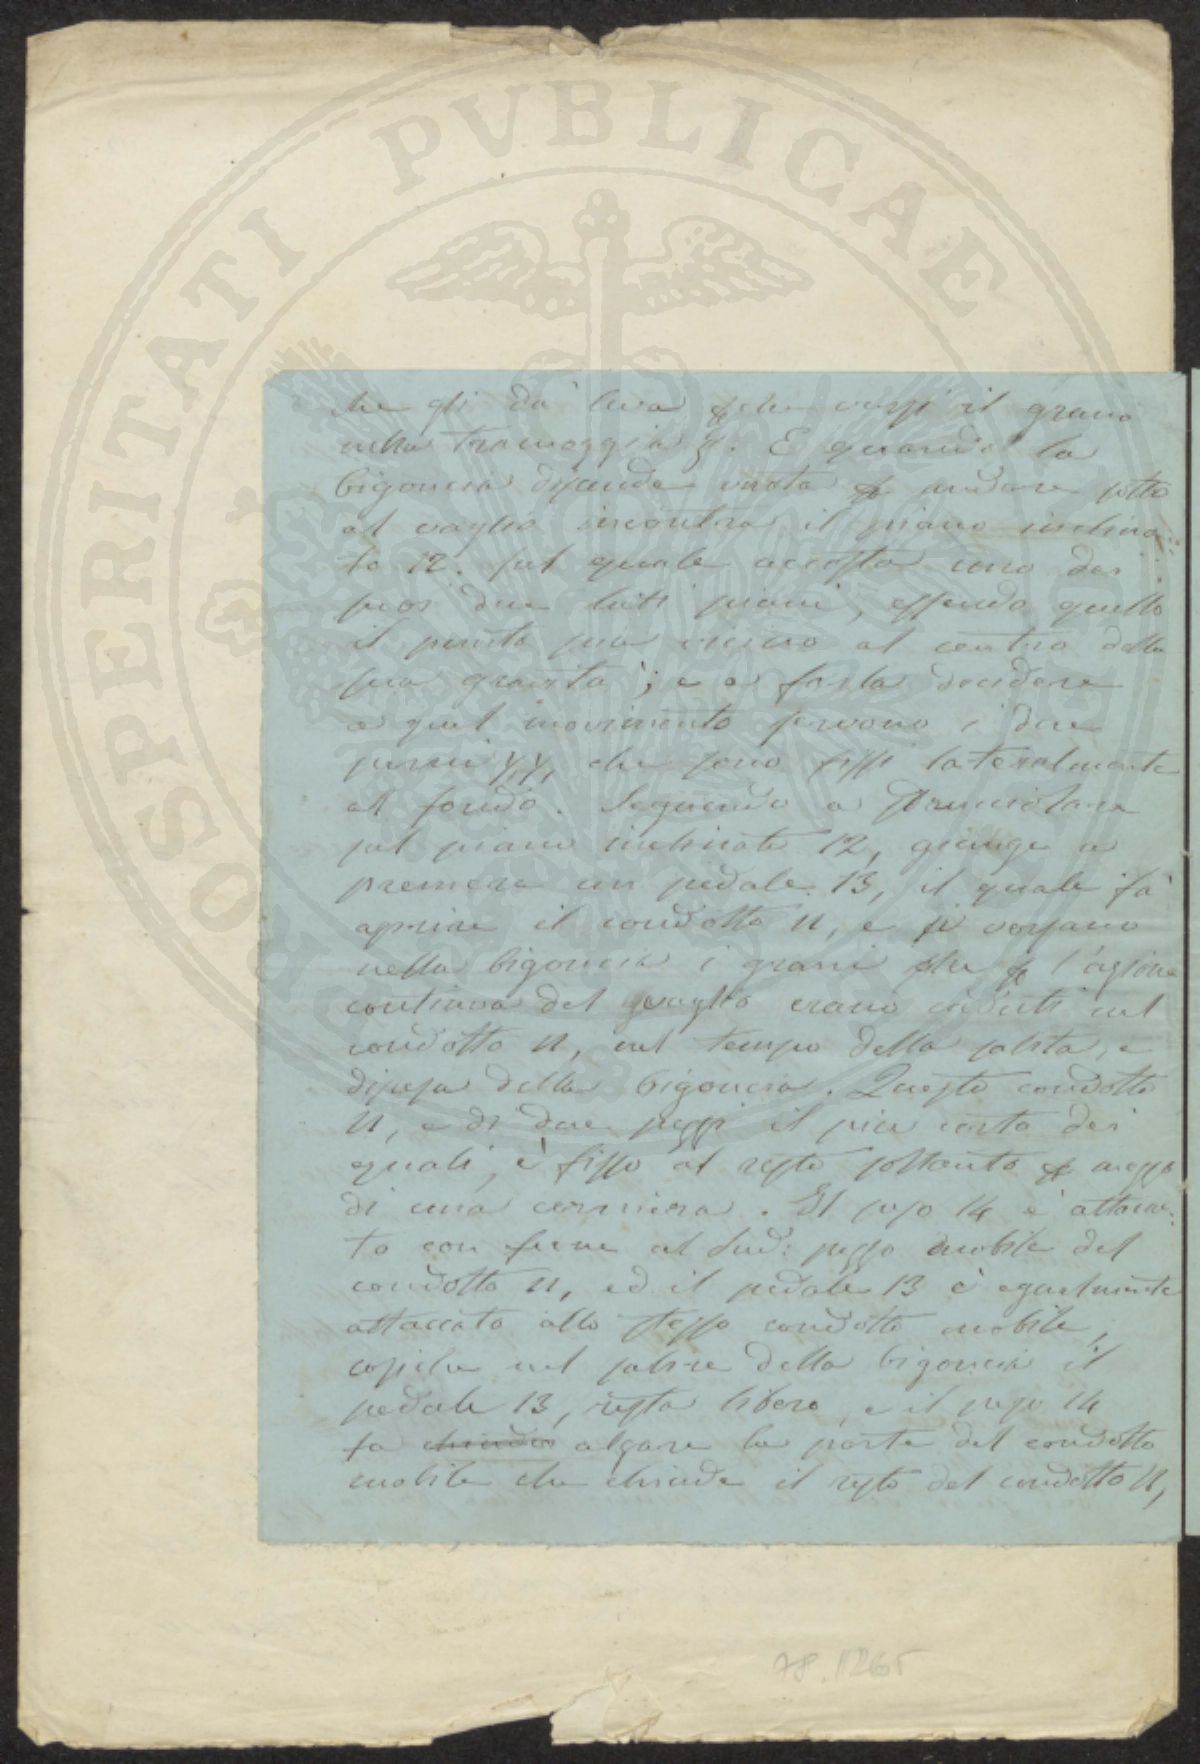 PROSPERITATI PUBLICAE
che gli dà leva e che versi il grano
nella tramoggia. E quando la
bigoncia discende vuota per andare sotto
al vaglio incontra il piano inclina
to 12. sul quale accosta uno dei
suoi due lati piani, essendo quello
il punto più vicino al centro della
sua gravita; e a farla decidere
a quel movimento servono i due
perni y,y, che sono fissi lateralmente
al fondo. Seguendo a sdrucciolare
sul piano inclinato 12, giunge a
premere un pedale 13, il quale fà
aprire il condotto 11, e si versano
nella bigoncia i grani che per l'azione
continua del vaglio erano caduti nel
condotto 11, nel tempo della salita, e
discesa della bigoncia. Questo condotto
11, è di due pezzi il più corto dei
quali, è fisso al resto soltanto per mezzo
di una cerniera. Il peso 14 è attacca-
to con fune al sud: pezzo mobile del
condotto 11, ed il pedale 13 è egualmente
attaccato allo stesso condotto mobile,
cosiche nel salire della bigoncia il
pedale 13, resta libero, e il peso 14
fa chiudere alzare la parte del condotto
mobile che chiude il resto del condotto 11,
78.1265